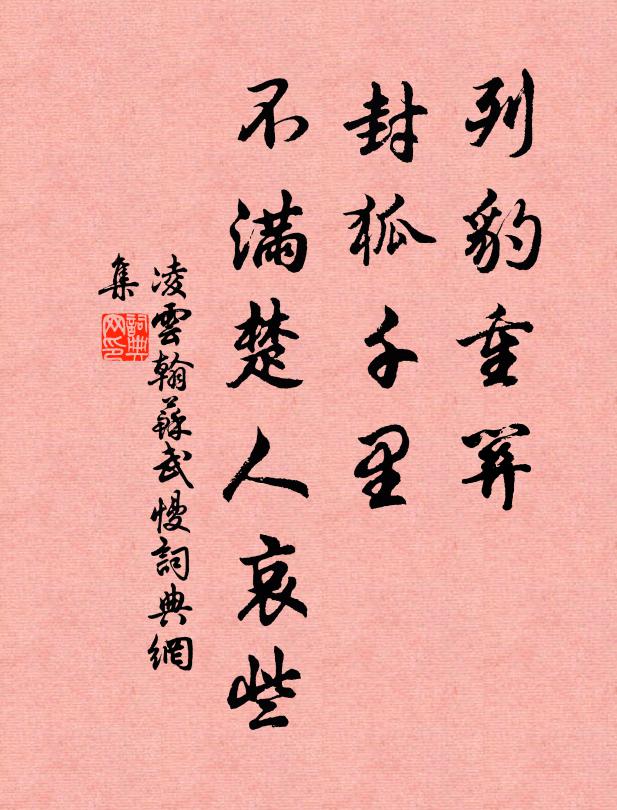 列豹重關
封狐千里
不滿楚人哀些
凌雲翰蘇武慢詞典網
集
詞典
网印